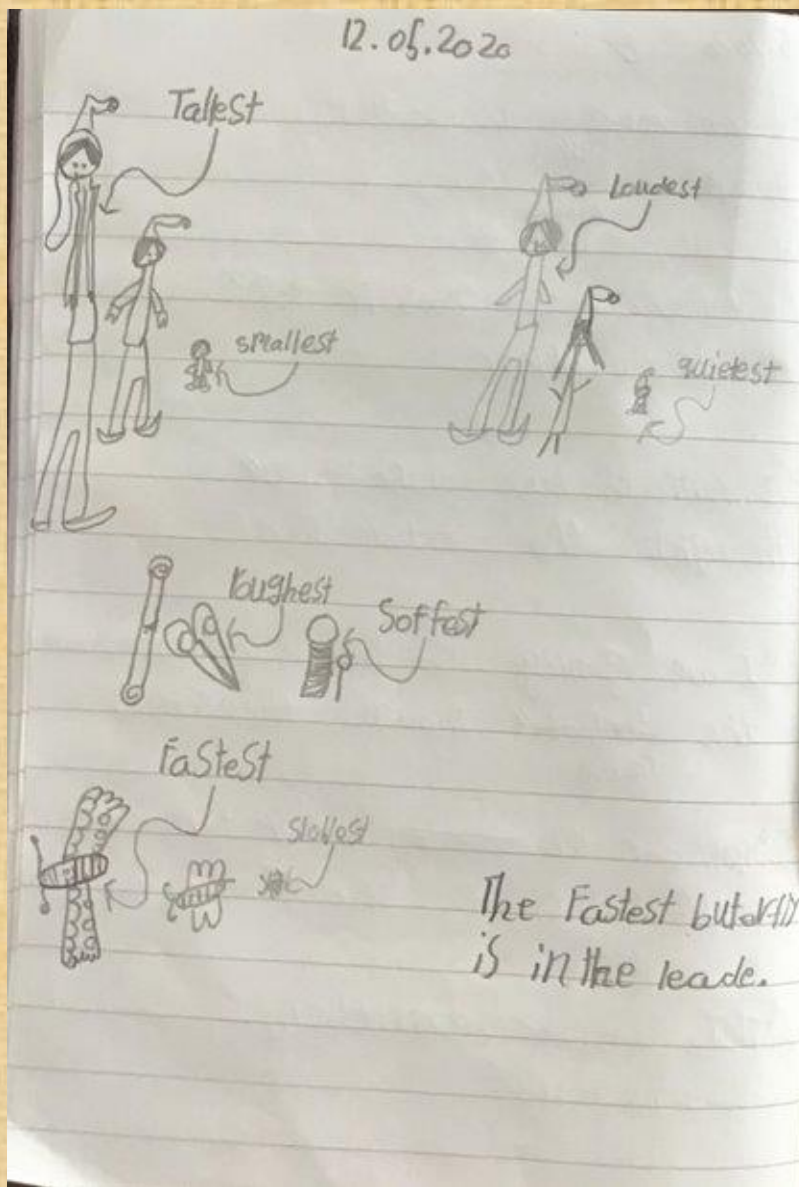 12.05.2020
Tallest
Loudest
smallest
quietest
Roughest
Soffest
Fastest
Slowest
The Fastest buterfly
is in the leade.